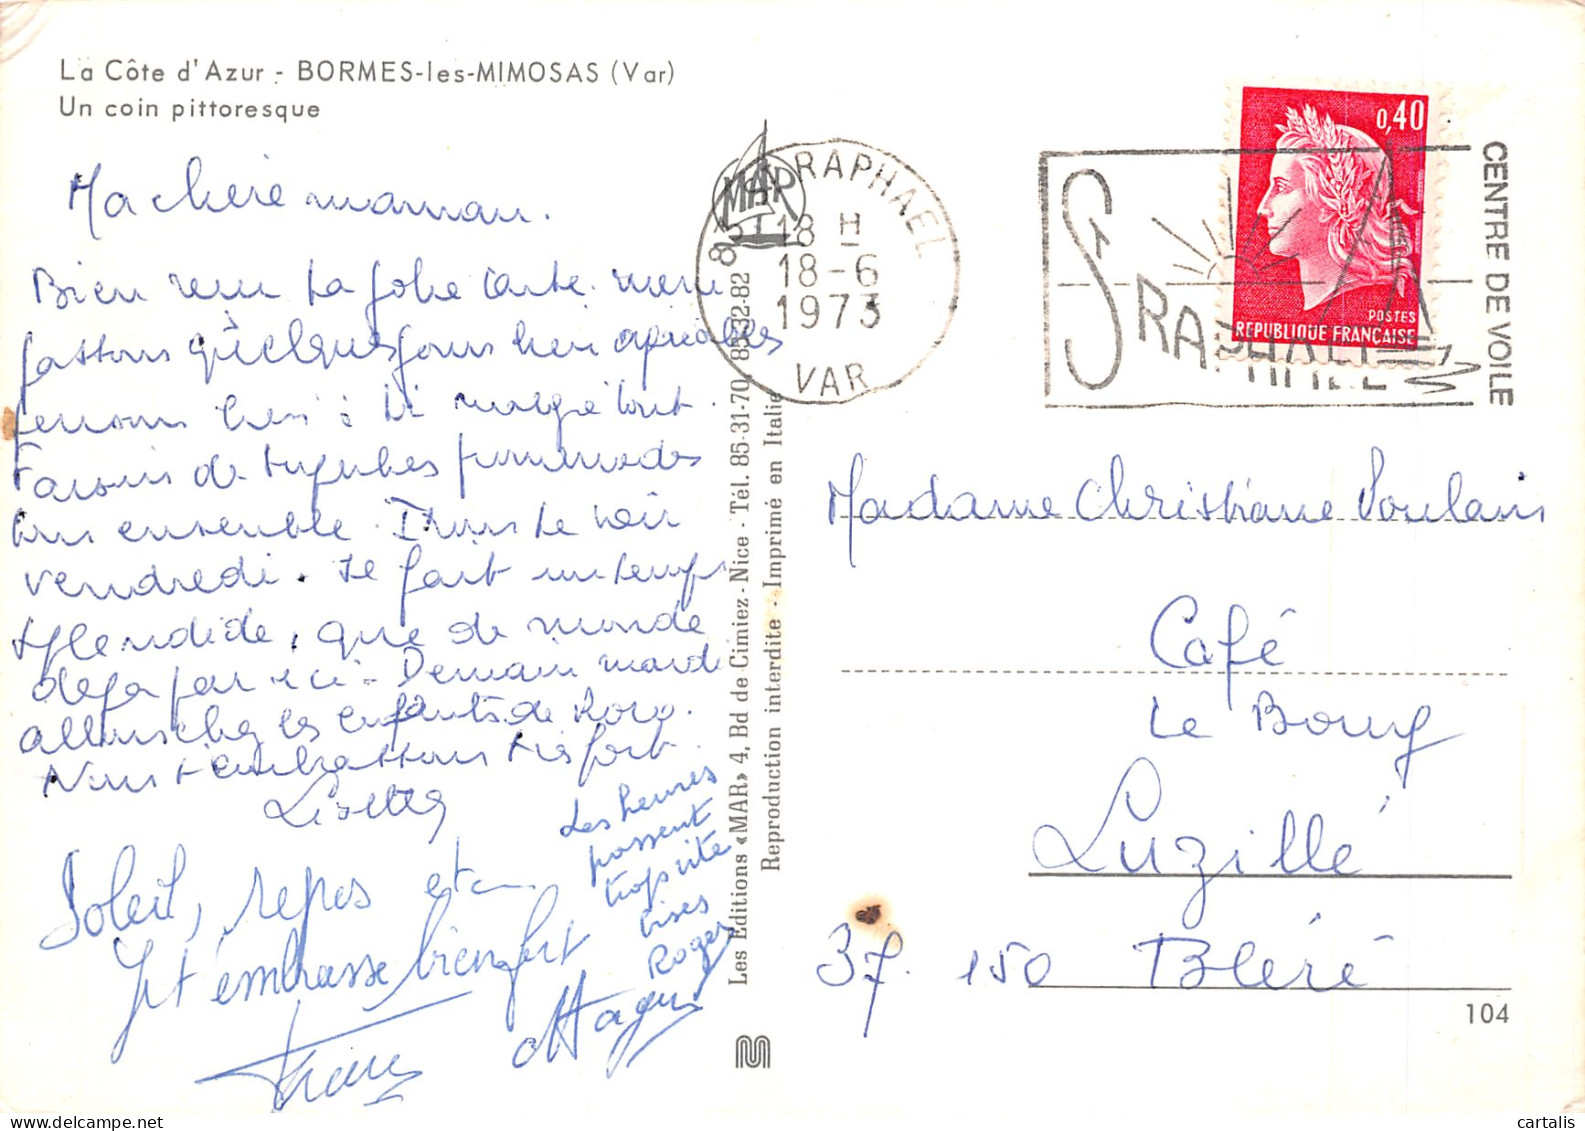 La Côte d'Azur - BORMES-les-MIMOSAS (Var)
Un coin pittoresque
Ma chère maman.
Bien reçu ta jolie carte. nous
passons quelques jours bien agréables
serons bien à toi malgré tout.
Faisons de superbes promenades
tous ensemble. Irons te voir
vendredi. Il fait un temps
splendide, que de monde
deja par ici. Demain mardi
allons chez les enfants de Roro.
Nous t'embrassons très fort.
Lisette
Soleil, repos etc...
Je t'embrasse bien fort
Les heures
passent
trop vite
bises
Roger
Les Editions «MAR» 4, Bd de Cimiez - Nice - Tél. 85-31-70, 8332-82
Reproduction interdite - Imprimé en Italie
MAR
83 ST RAPHAEL
18 H
18-6
1973
VAR
ST RAPHAEL
CENTRE DE VOILE
0,40
POSTES
REPUBLIQUE FRANÇAISE
Madame Christiane Poulain
Café
Le Bourg
Luzillé
37. 150 Bléré
104
cartalis